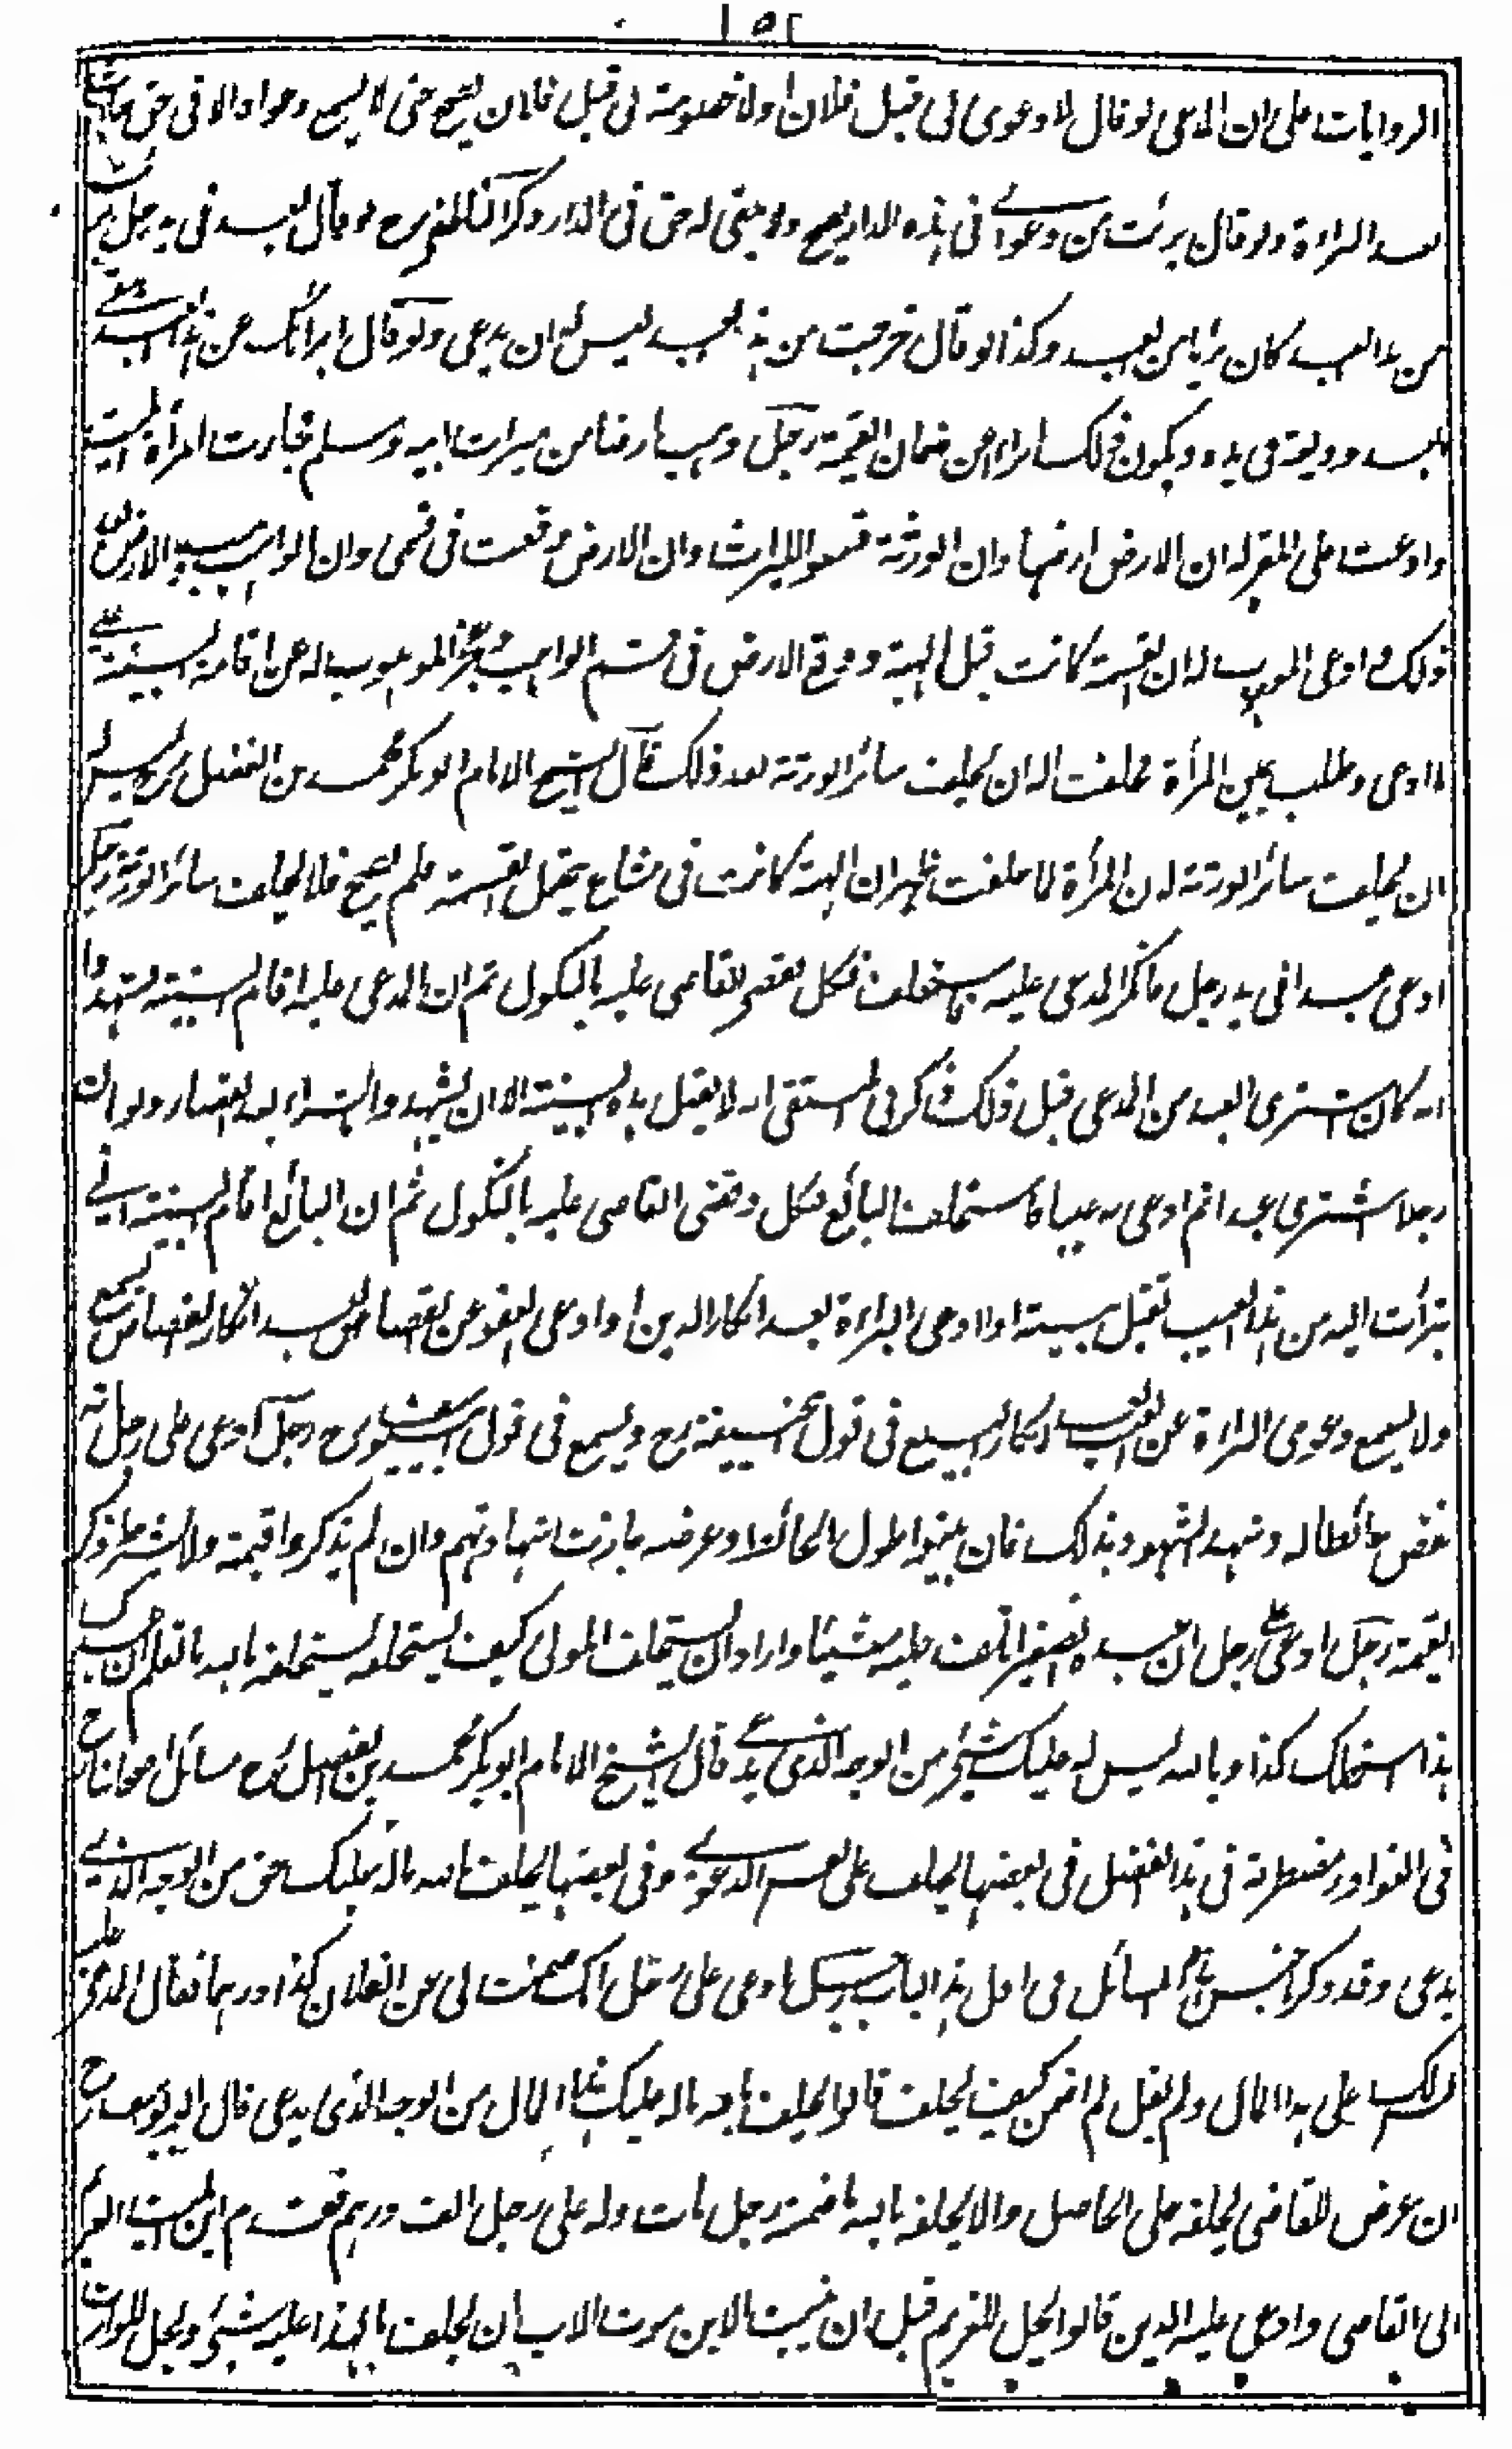 ١٥٢
الروايات على ان المدعى لو قال لا دعوى لى قبل فلان او لا خصومة لى قبل فلان يصح حتى لا يسمع دعواه الا فى حق حادث
بعد البراءة ولو قال برئت من دعواى فى هذه الدار يصح ولا يبقى له حق فى الدار وذكر الناطفى رح لو قال لعبد فى يد رجل برئت
من هذا العبد كان بريا من العبد وكذا لو قال خرجت من هذا العبد ليس له ان يدعى ولو قال ابرأتك عن هذا العبد يبقى
العبد وديعة فى يده ويكون ذلك ابراء عن ضمان القيمة رجل وهب ارضا من ميراث ابيه وسلم فجاءت امرأة الميت
وادعت على المقر له ان الارض ارضها وان الورثة قسموا الميراث وان الارض وقعت فى قسمى وان الواهب وهب الارض بعد
ذلك وادعى الموهوب له ان القسمة كانت قبل الهبة ووقع الارض فى قسم الواهب وعجز الموهوب له عن اقامة البينة على
ما ادعى وطلب يمين المرأة فحلفت اله ان يحلف سائر الورثة بعد ذلك قال الشيخ الامام ابو بكر محمد بن الفضل رح ليس له
ان يحلف سائر الورثة لان المرأة لما حلفت ظهر ان الهبة كانت فى مشاع يحتمل القسمة فلم يصح فلا يحلف سائر الورثة رجل
ادعى عبدا فى يد رجل فانكر المدعى عليه فاستحلف فنكل فقضى القاضى عليه بالنكول ثم ان المدعى عليه اقام البينة فشهدوا
انه كان اشترى العبد من المدعى قبل ذلك ذكر فى المنتقى انه لا يقبل هذه البينة الا ان يشهدوا بالشراء بعد القضاء ولو ان
رجلا اشترى عبدا ثم ادعى به عيبا فاستحلف البائع فنكل وقضى القاضى عليه بالنكول ثم ان البائع اقام البينة انى
تبرأت اليه من هذا العيب تقبل بينته ولو ادعى البراءة بعد انكار الدين او ادعى العفو عن القصاص بعد انكار القصاص يسمع
ولا يسمع دعوى البراءة عن العيب بعد انكار البيع فى قول ابى حنيفة رح ويسمع فى قول ابى يوسف رح رجل ادعى على رجل انه
نقض حائطا له وشهد الشهود بذلك فان بينوا طول الحائط وعرضه جازت شهادتهم وان لم يذكروا قيمته ولا يشترط ذكر
القيمة رجل ادعى على رجل ان عبده الصغير اتلف عليه شيئا واراد ان يستحلف المولى كيف يستحلفه يستحلفه بالله ما تعلم ان عبدك
هذا استهلك كذا وبالله ليس له عليك شئ من الوجه الذى يدعى قال الشيخ الامام ابو بكر محمد بن الفضل رح مسائل اصحابنا رح
فى النوادر مضطربة فى هذا الفصل فى بعضها يحلف على نفس الدعوى وفى بعضها يحلف بالله ما له عليك حق من الوجه الذى
يدعى وقد ذكر جنس هذه المسائل فى اول هذا الباب رجل ادعى على رجل انك ضمنت لى عن الفلان كذا درهما فقال المدعى عليه
ليس لك على هذا المال ولم يقل لم اضمن كيف يحلف قالوا يحلف بالله ما له عليك هذا المال من الوجه الذى يدعى قال ابو يوسف رح
ان عرض للقاضى يحلفه على الحاصل والا يحلفه بالله ما ضمنت رجل مات وله على رجل الف درهم فقدم ابن الميت الغريم
الى القاضى وادعى عليه الدين قالوا يحل للغريم قبل ان يثبت الابن موت الاب ان يحلف ما لهذا عليه شئ ويحل للوارث